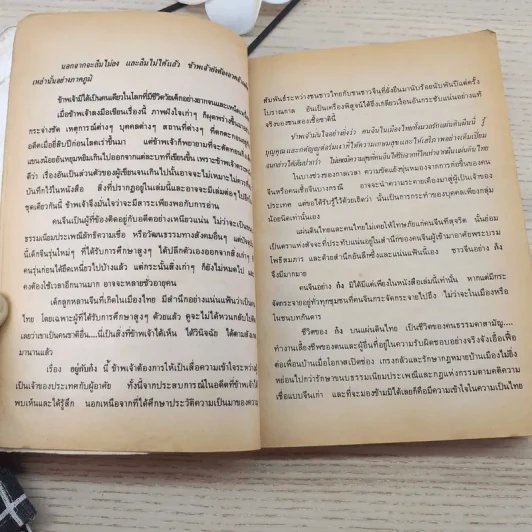 นอกจากจะลืมไม่ลง และลืมไม่ได้แล้ว ข้าพเจ้ายังต้อง
เหล่านั้นอย่างภาคภูมิ
ข้าพเจ้ามิได้เป็นคนเดียวในโลกที่มีชีวิตวัยเด็กอย่างยากจนและ
เมื่อข้าพเจ้าลงมือเขียนเรื่องนี้ ภาพฝังใจเก่าๆ ก็ผุดพร่างขึ้นมา
กระจ่างชัด เหตุการณ์ต่างๆ บุคคลต่างๆ สถานที่ต่างๆ ที่
อดีตเมื่อยี่สิบปีก่อนโลดเต้าขึ้นมา แต่ข้าพเจ้าก็พยายามที่จะตัดทอน
แขนงน้อยอันฟุ่มเฟือยเกินไปออกจากแต่ละบทที่เขียนขึ้น เพราะข้าพเจ้า
ดีว่า เรื่องอันเป็นส่วนตัวของผู้เขียนจนเกินไปนั้นอาจจะไม่เหมาะ
บันทึกไว้ในหนังสือ สิ่งที่ปรากฏอยู่ในเล่มนี้และอาจจะมีเล่มต่อๆ ไป
ชุดเดียวกันนี้ ข้าพเจ้าจึงมั่นใจว่าจะมีสาระเพียงพอกับการอ่าน
คนจีนเป็นผู้ที่ข้องติดอยู่กับอดีตอย่างเหนียวแน่น ไม่ว่าจะเป็น
ธรรมเนียมประเพณีลัทธิความเชื่อ หรือวัฒนธรรมทางสังคมอื่นๆ แต่ปัจจุบัน
นี้เด็กจีนรุ่นใหม่ๆ ที่ได้รับการศึกษาสูงๆ ได้ปลีกตัวเองออกจากสิ่งเก่าๆ
คนรุ่นก่อนได้ยึดเหนี่ยวไปบ้างแล้ว แต่กระนั้นสิ่งเก่าๆ ก็ยังไม่หมดไป
คงต้องใช้เวลาอีกนานมาก อาจจะหลายชั่วอายุคน
เด็กลูกหลานจีนที่เกิดในเมืองไทย มีสำนึกอย่างแน่นแฟ้นว่าเป็น
ไทย โดยเฉพาะผู้ที่ได้รับการศึกษาสูงๆ ด้วยแล้ว ดูจะไม่ได้หวนกลับไป
เลยว่าเขาเป็นคนชาติอื่น....นี่เป็นสิ่งที่ข้าพเจ้าได้เห็น ได้วินิจฉัย ได้ถาม
มานานแล้ว
เรื่อง อยู่กับก๋ง นี้ ข้าพเจ้าต้องการให้เป็นสื่อความเข้าใจระหว่าง
เป็นเจ้าของประเทศกับผู้อาศัย ทั้งนี้จากประสบการณ์ในอดีตที่ข้าพเจ้าได้
พบเห็นและได้รู้สึก นอกเหนือจากที่ได้ศึกษาประวัติความเป็นมาของ
สัมพันธ์ระหว่างชนชาวไทยกับชนชาวจีนที่ยั่งยืนมานับร้อยนับพันปีแต่ครั้ง
โบราณกาล อันเป็นเครื่องพิสูจน์ได้ถึงเกลียวเงื่อนอันกระชับแน่นอย่างแท้
จริงของชนสองเชื้อชาตินี้
ข้าพเจ้ามั่นใจอย่างยิ่งว่า คนจีนในเมืองไทยทั้งมวลรักแผ่นดินผืนนี้ รู้
บุญคุณและกตัญญูต่อร่มเงาที่ให้ความเกษมสุขและให้เสรีภาพอย่างเต็มเปี่ยม
จนอาจกล่าวได้เต็มคำว่า
ในบางช่วงของกาลเวลา ความขัดแย้งขุ่นหมองจากการก่อขึ้นของคน
จีนหรือคนเชื้อจีนบางกรณี อาจจะนำความระคายเคืองมาสู่ผู้เป็นเจ้าของ
ประเทศ แต่ขอได้รับรู้ไว้ด้วยเถิดว่า นั่นเป็นการกระทำของบุคคลเพียงกลุ่ม
น้อยนิดเท่านั้นเอง
แผ่นดินไทยและคนไทยไม่เคยให้โทษภัยแก่คนจีนที่สุจริต นั้นย่อม
เป็นตราแห่งสัจจะที่ประทับแน่นอยู่ในสำนึกของคนจีนผู้เข้ามาอาศัยพระบรม
โพธิสมภาร และด้วยสำนึกอันลึกซึ้งและแน่นแฟ้นนี้เอง ชาวจีนอย่าง ก๋ง
จึงมีมากมาย
คนจีนอย่าง ก๋ง มิได้มีแต่เพียงในหนังสือเล่มนี้เท่านั้น หากแต่มีกระ
จัดกระจายอยู่ทั่วทุกชุมชนที่คนจีนกระจัดกระจายไปถึง ไม่ว่าจะในเมืองหรือ
ในชนบทกันดาร
ชีวิตของ ก๋ง บนแผ่นดินไทย เป็นชีวิตของคนธรรมดาสามัญ....
ทำงานเลี้ยงชีพของตนและผู้อื่นที่อยู่ในความรับผิดชอบอย่างจริงจังเอื้อเฟื้อ
ต่อเพื่อนบ้านเมื่อโอกาสเปิดช่อง เกรงกลัวและรักษากฎหมายบ้านเมืองไม่ยิ่ง
หย่อนไปกว่ารักษาขนบธรรมเนียมประเพณีและกฎแห่งกรรมตามคติความ
เชื่อแบบจีนเก่า และที่จะมองข้ามมิได้เลยก็คือมีความเข้าใจในความเป็นไทย